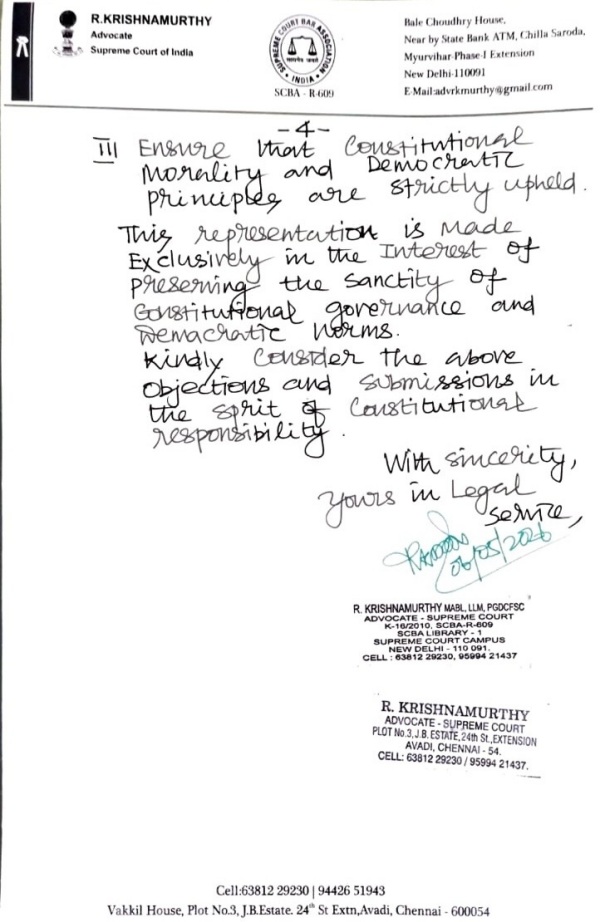 R.KRISHNAMURTHY
Advocate
Supreme Court of India
SUPREME COURT BAR ASSOCIATION
INDIA
SCBA - R-609
Bale Choudhry House,
Near by State Bank ATM, Chilla Saroda,
Myurvihar-Phase-I Extension
New Delhi-110091
E-Mail:advrkmurthy@gmail.com
-4-
III Ensure that Constitutional
Morality and Democratic
principles are strictly upheld.
This representation is Made
Exclusively in the Interest of
preserving the sanctity of
Constitutional governance and
Demacratic norms.
Kindly Consider the above
objections and submissions in
the sprit of Constitutional
responsibility.
With sincerity,
Yours in Legal
Service,
06/05/2026
R. KRISHNAMURTHY MABL, LLM, PGDCFSC
ADVOCATE - SUPREME COURT
K-16/2010, SCBA-R-609
SCBA LIBRARY - 1
SUPREME COURT CAMPUS
NEW DELHI - 110 091.
CELL : 63812 29230, 95994 21437
R. KRISHNAMURTHY
ADVOCATE - SUPREME COURT
PLOT No.3, J.B. ESTATE, 24th St.,EXTENSION
AVADI, CHENNAI - 54.
CELL: 63812 29230 / 95994 21437.
Cell:63812 29230 | 94426 51943
Vakkil House, Plot No.3, J.B.Estate. 24th St Extn,Avadi, Chennai - 600054